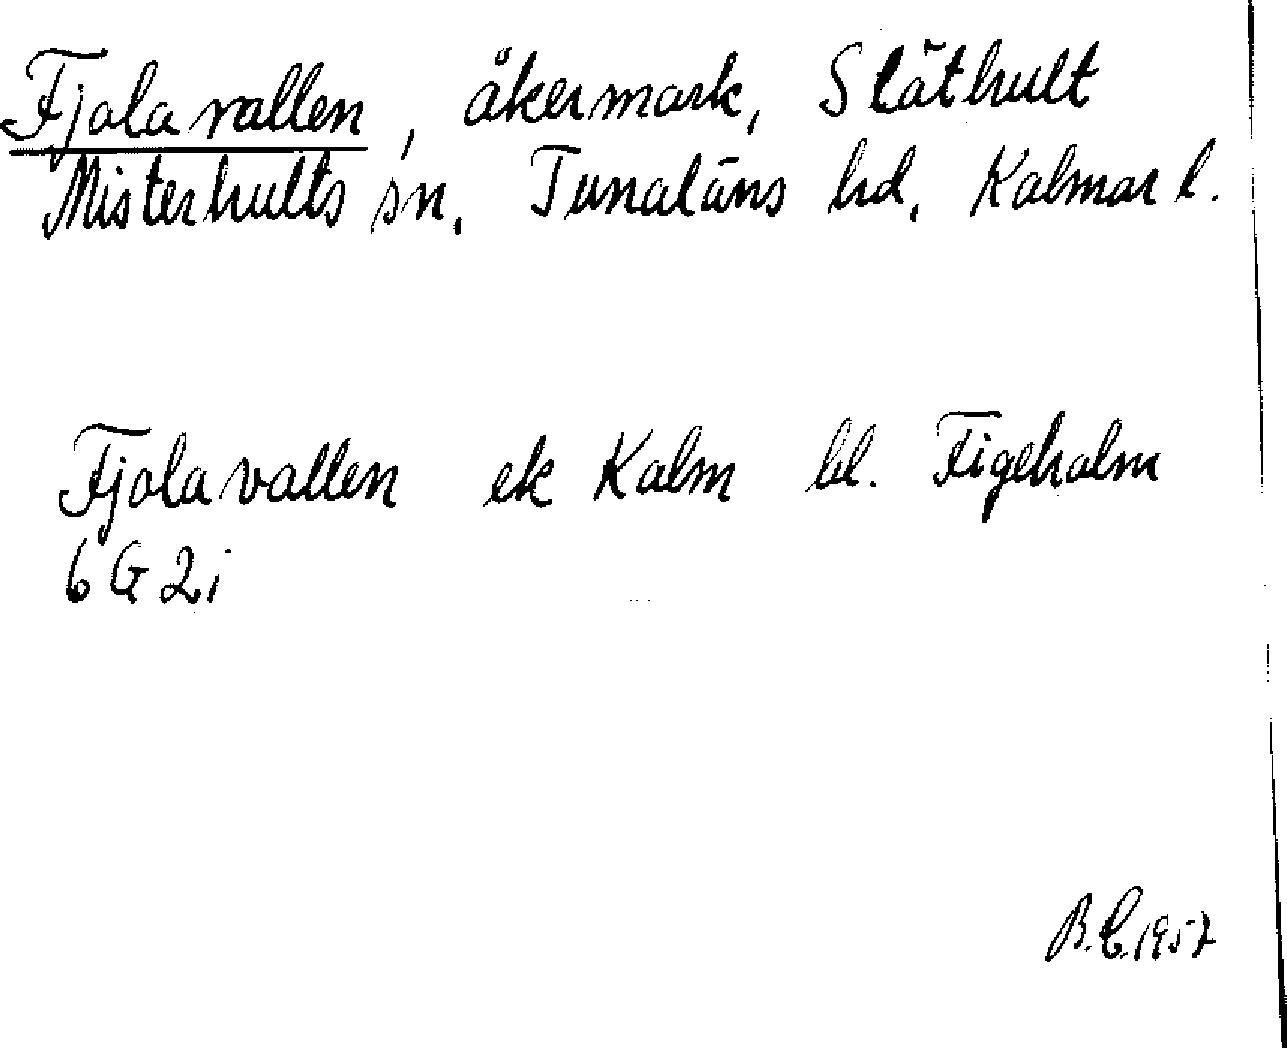 Fjolavallen, åkermark, Släthult
Misterhults sn. Tunaläns hd. Kalmar l.
Fjolavallen ek Kalm bl. Figeholm
6G2i
B.C. 1957